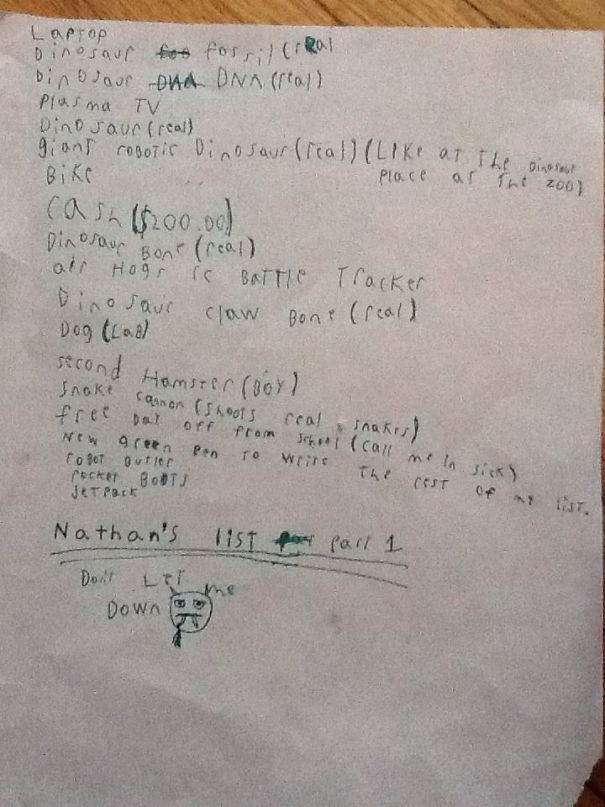 Laptop
Dinosaur fossil (real
Dinosaur DNA (real)
Plasma TV
Dinosaur (real)
giant robotic Dinosaur (real) (Like at the Dinosaur
place at the zoo)
Bike
cash ($200.00)
Dinosaur Bone (real)
air Hogs rc Battle Tracker
Dinosaur claw Bone (real)
Dog (Lab)
second Hamster (Boy)
snake cannon (shoots real snakes)
free Day off from school (call me in sick)
New green pen to write the rest of my list.
robot butler
rocket Boots
Jetpack
Nathan's list part 1
Don't Let me
Down